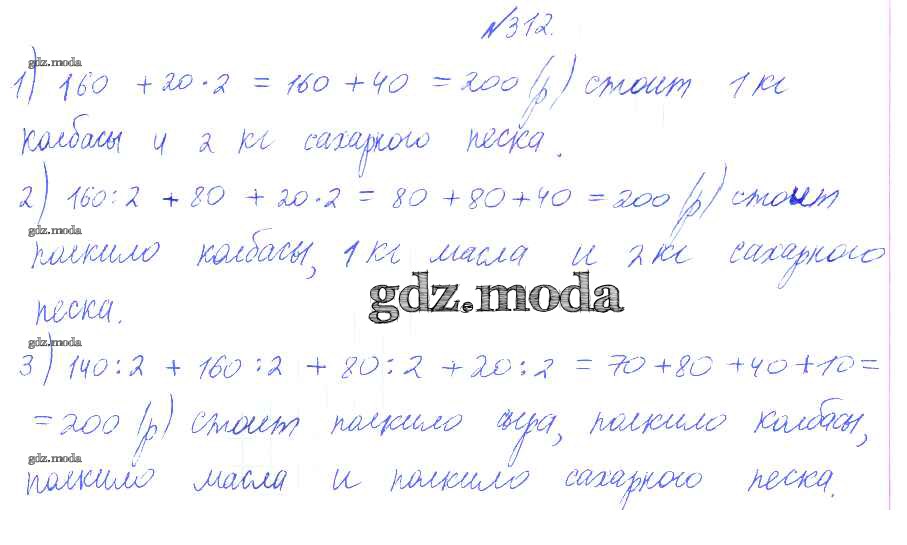 №312.
gdz.moda
1) 160 + 20·2 = 160 + 40 = 200 (р) стоит 1 кг
колбасы и 2 кг сахарного песка.
2) 160:2 + 80 + 20·2 = 80 + 80 + 40 = 200 (р) стоит
gdz.moda
полкило колбасы, 1 кг масла и 2 кг сахарного
gdz.moda
песка.
gdz.moda
3) 140:2 + 160:2 + 80:2 + 20:2 = 70 + 80 + 40 + 10 =
= 200 (р) стоит полкило сыра, полкило колбасы,
gdz.moda
полкило масла и полкило сахарного песка.